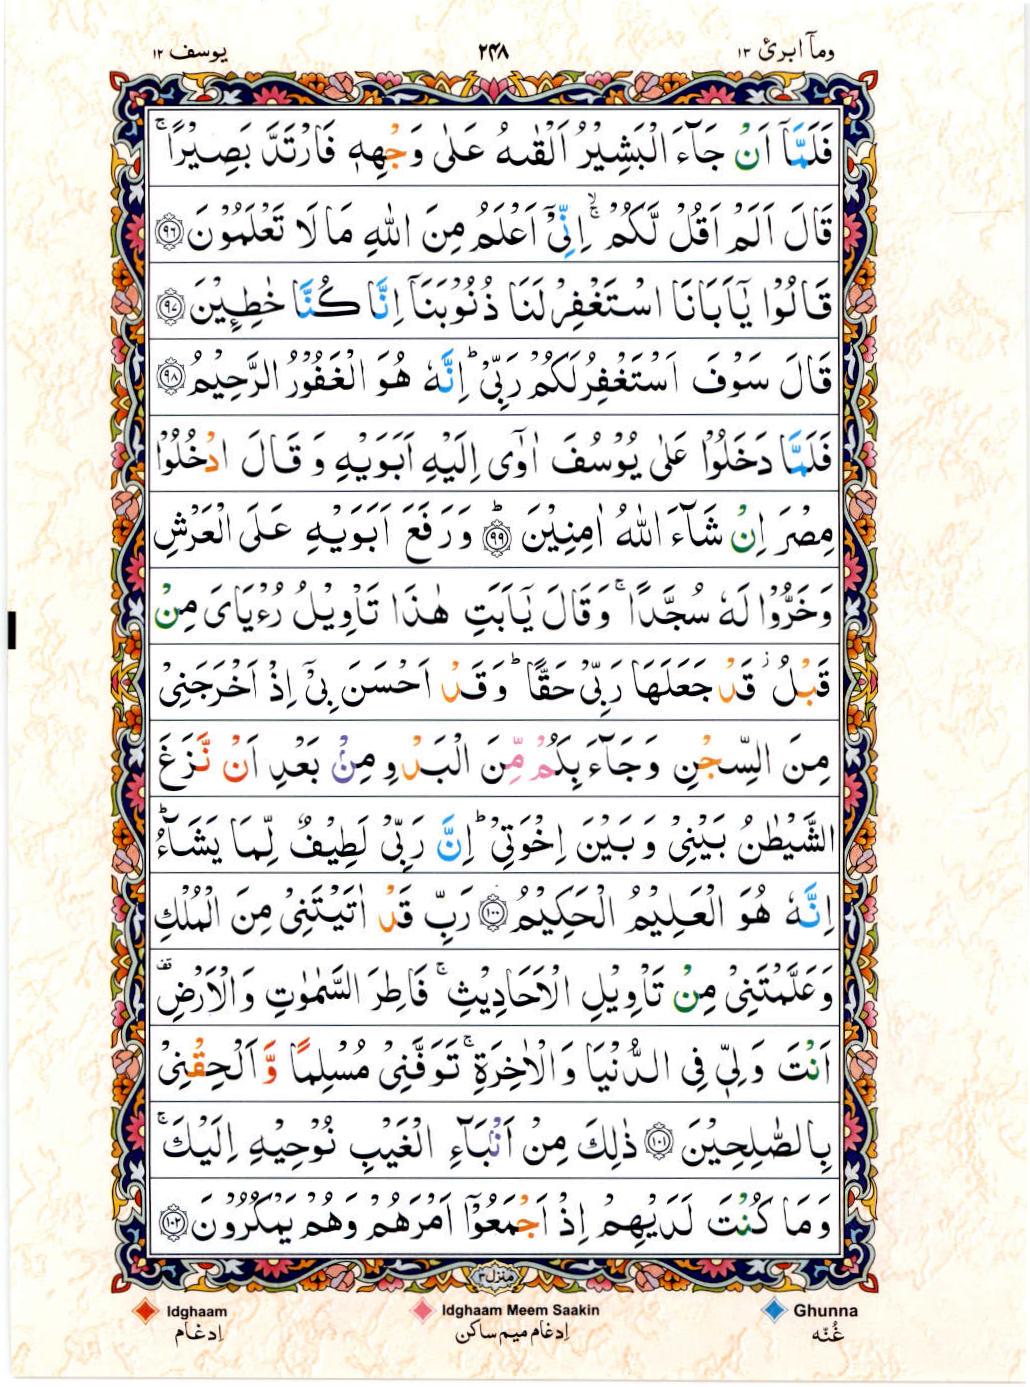 ومآ ابرئ ۱۳
۲۴۸
یوسف ۱۲
فَلَمَّاۤ اَنْ جَآءَ الْبَشِیْرُ اَلْقٰىهُ عَلٰی وَجْهِهٖ فَارْتَدَّ بَصِیْرًا ۚ
قَالَ اَلَمْ اَقُلْ لَّكُمْ ۚۙ اِنِّیْۤ اَعْلَمُ مِنَ اللّٰهِ مَا لَا تَعْلَمُوْنَ ﴿۹۶﴾
قَالُوْا یٰۤاَبَانَا اسْتَغْفِرْ لَنَا ذُنُوْبَنَاۤ اِنَّا كُنَّا خٰطِـِٕیْنَ ﴿۹۷﴾
قَالَ سَوْفَ اَسْتَغْفِرُ لَكُمْ رَبِّیْ ؕ اِنَّهٗ هُوَ الْغَفُوْرُ الرَّحِیْمُ ﴿۹۸﴾
فَلَمَّا دَخَلُوْا عَلٰی یُوْسُفَ اٰوٰۤی اِلَیْهِ اَبَوَیْهِ وَ قَالَ ادْخُلُوْا
مِصْرَ اِنْ شَآءَ اللّٰهُ اٰمِنِیْنَ ﴿ؕ۹۹﴾ وَ رَفَعَ اَبَوَیْهِ عَلَی الْعَرْشِ
وَ خَرُّوْا لَهٗ سُجَّدًا ۚ وَ قَالَ یٰۤاَبَتِ هٰذَا تَاْوِیْلُ رُءْیَایَ مِنْ
قَبْلُ ؗ قَدْ جَعَلَهَا رَبِّیْ حَقًّا ؕ وَ قَدْ اَحْسَنَ بِیْۤ اِذْ اَخْرَجَنِیْ
مِنَ السِّجْنِ وَ جَآءَ بِكُمْ مِّنَ الْبَدْوِ مِنْۢ بَعْدِ اَنْ نَّزَغَ
الشَّیْطٰنُ بَیْنِیْ وَ بَیْنَ اِخْوَتِیْ ؕ اِنَّ رَبِّیْ لَطِیْفٌ لِّمَا یَشَآءُ ؕ
اِنَّهٗ هُوَ الْعَلِیْمُ الْحَكِیْمُ ﴿۱۰۰﴾ رَبِّ قَدْ اٰتَیْتَنِیْ مِنَ الْمُلْكِ
وَ عَلَّمْتَنِیْ مِنْ تَاْوِیْلِ الْاَحَادِیْثِ ۚ فَاطِرَ السَّمٰوٰتِ وَ الْاَرْضِ قف
اَنْتَ وَلِیّٖ فِی الدُّنْیَا وَ الْاٰخِرَةِ ۚ تَوَفَّنِیْ مُسْلِمًا وَّ اَلْحِقْنِیْ
بِالصّٰلِحِیْنَ ﴿۱۰۱﴾ ذٰلِكَ مِنْ اَنْۢبَآءِ الْغَیْبِ نُوْحِیْهِ اِلَیْكَ ۚ
وَ مَا كُنْتَ لَدَیْهِمْ اِذْ اَجْمَعُوْۤا اَمْرَهُمْ وَ هُمْ یَمْكُرُوْنَ ﴿۱۰۲﴾
منزل ۳
Idghaam Idghaam Meem Saakin Ghunna
اِدغام اِدغام میم ساکن غُنّہ